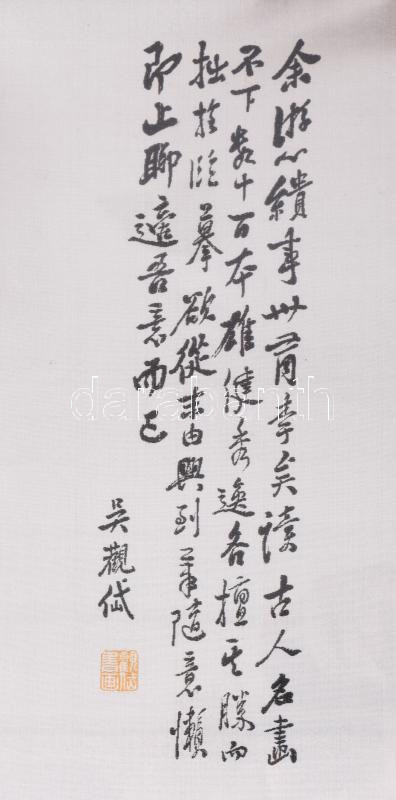 余游心繢事卅有年矣讀古人名畫
不下數十百本雄健秀逸各擅其勝而
拙於臨摹欲從末由興到筆隨意懶
即止聊適吾意而已
吳觀岱
darabanth